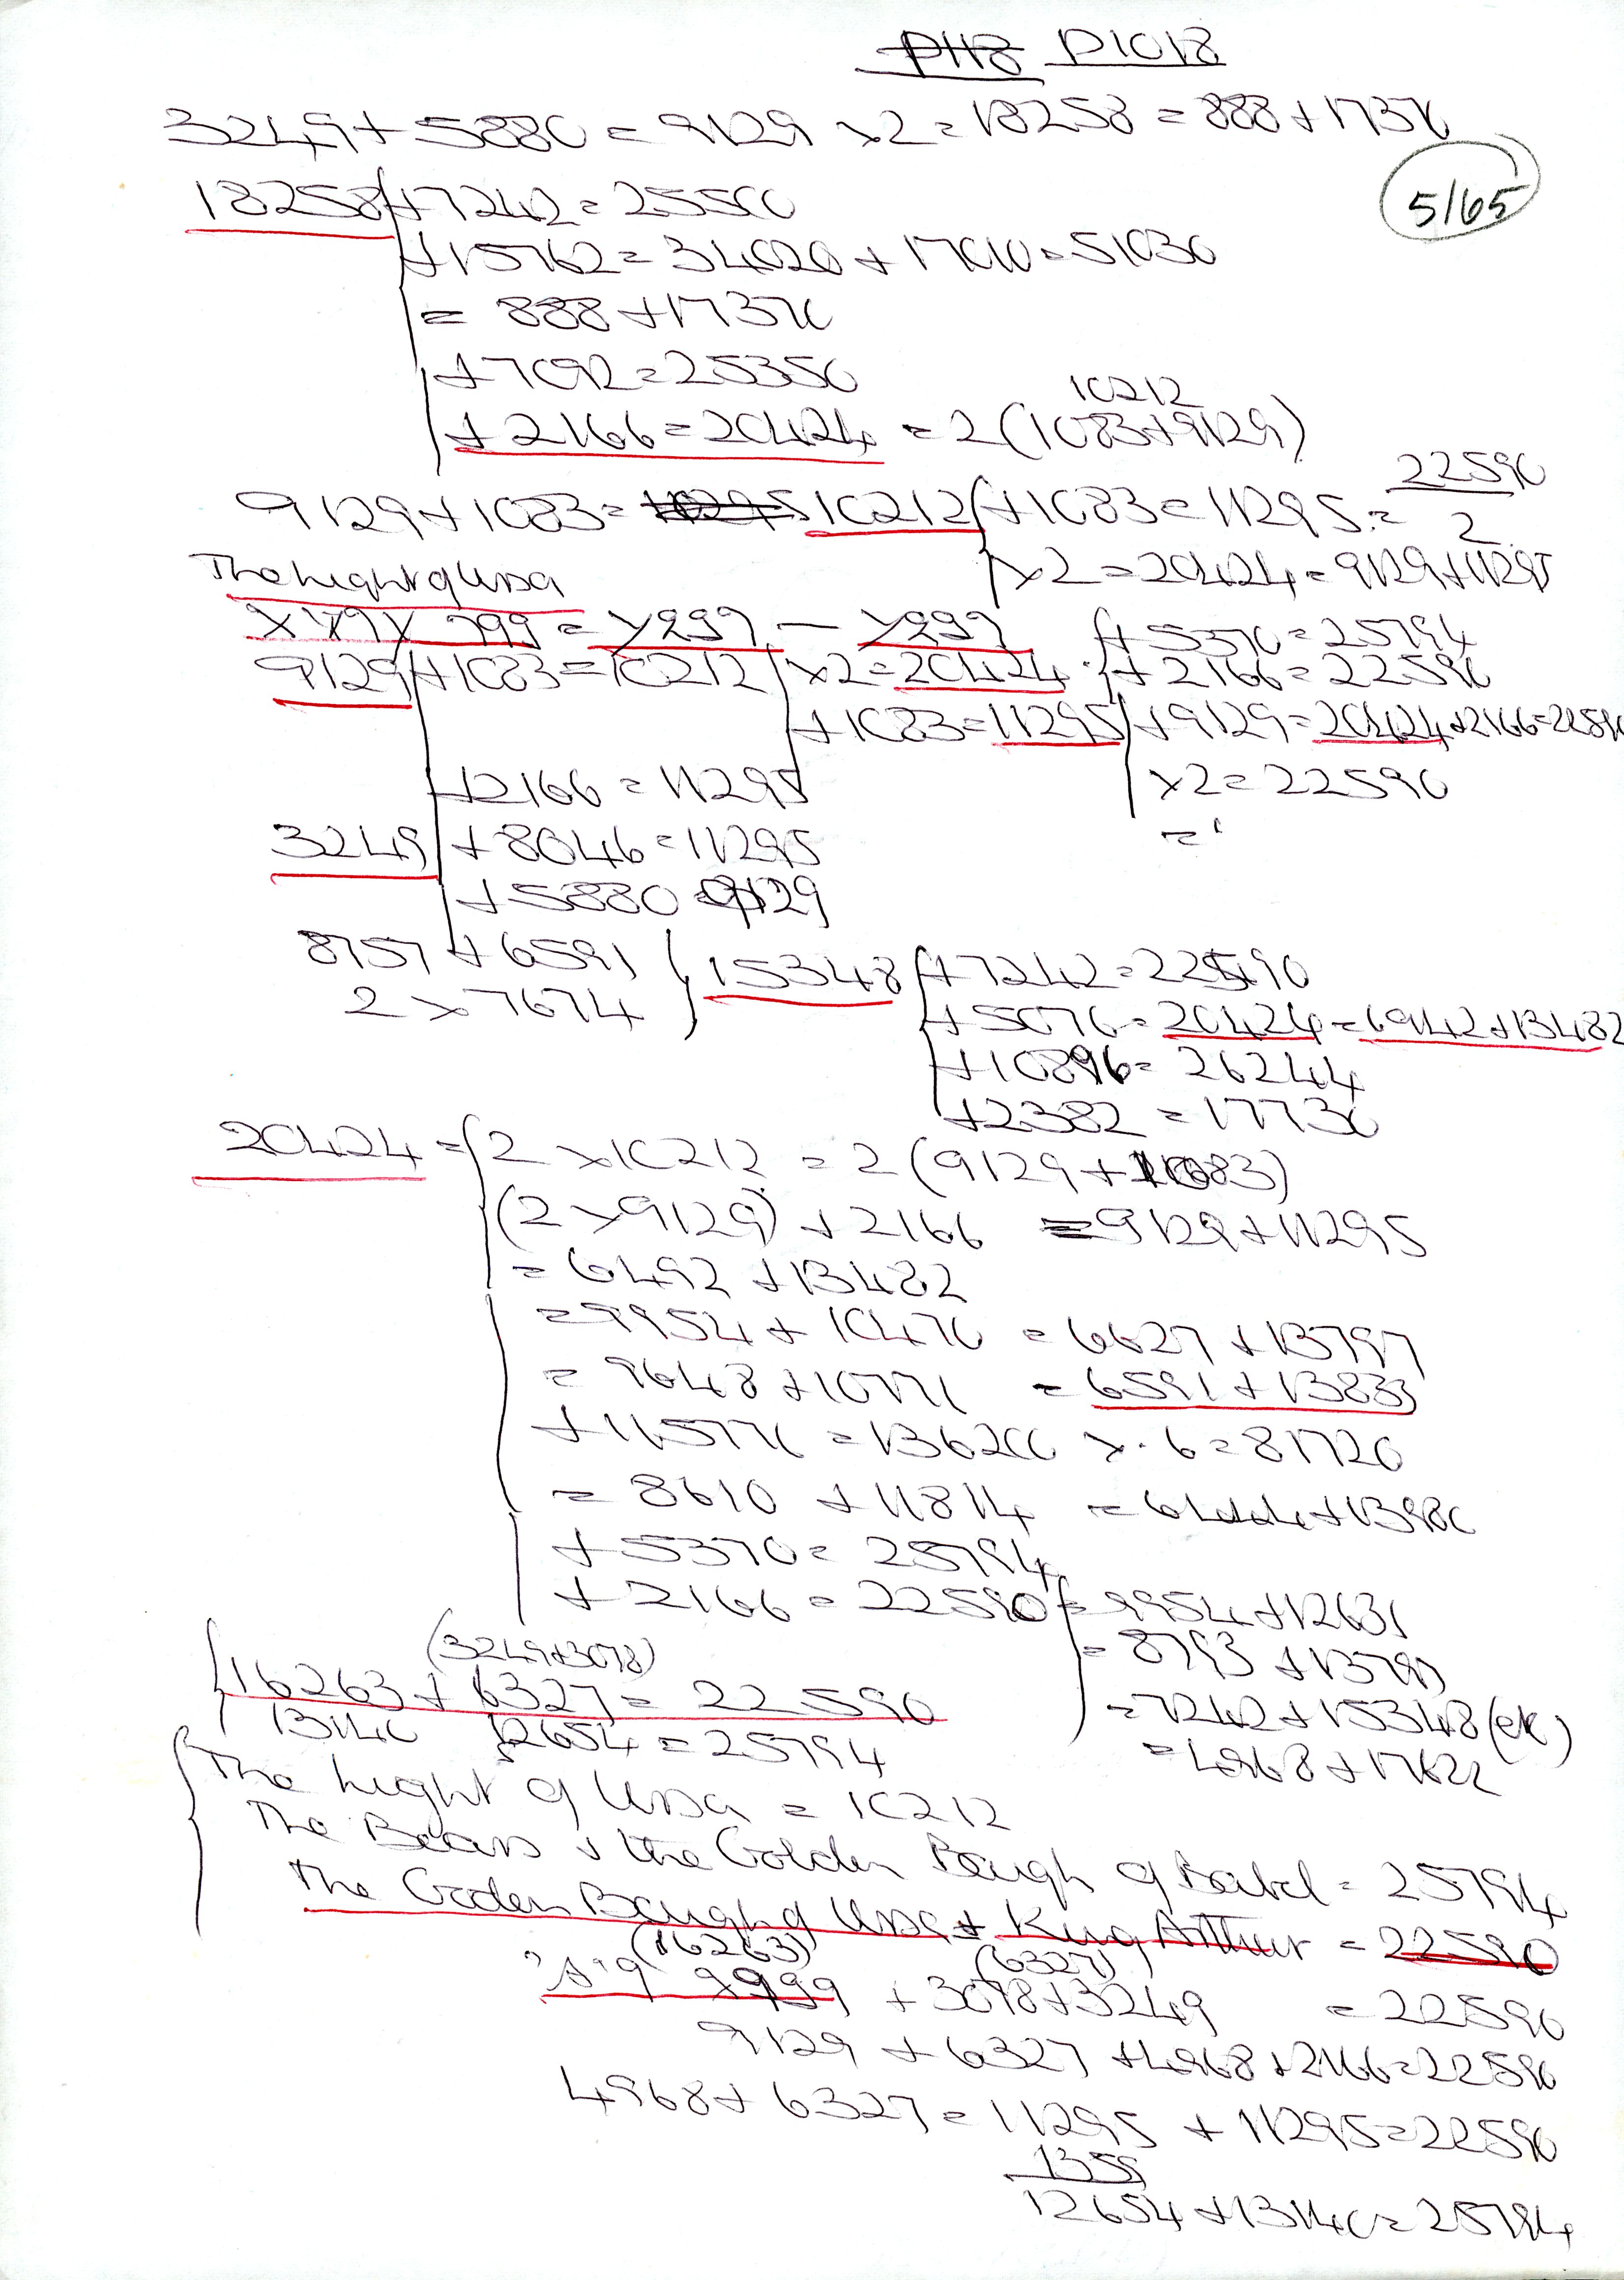 P118 P1018
3249 + 5880 = 9129 x2 = 18258 = 888 + 17370
5/65
18258 + 7242 = 25500
+ 15762 = 34020 + 17010 = 51030
= 888 + 17370
+ 7092 = 25350
10212
+ 2166 = 20424 = 2(1083+9129)
9129 + 1083 = 10212 + 1083 = 11295 = 22590/2
x2 = 20424 = 9129 + 11295
The height of Ursa
9129 + 1083 = 10212 x2 = 20424 + 5370 = 25794
+ 2166 = 22590
+ 1083 = 11295 + 9129 = 20424 + 2166 = 22590
+ 2166 = 11295 x2 = 22590
3249 + 8046 = 11295 =
+ 5880 = 9129
8757 + 6591 15348 + 7242 = 22590
2 x 7674
+ 5076 = 20424 = 6942 + 13482
+ 10896 = 26244
+ 2382 = 17730
20424 = 2 x 10212 = 2(9129 + 1083)
(2 x 9129) + 2166 = 9129 + 11295
= 6492 + 13482
= 9954 + 10470 = 6627 + 13797
= 9648 + 10776 = 6591 + 13833
+ 115776 = 136200 x 6 = 81720
= 8610 + 11814 = 6444 + 13980
+ 5370 = 25794
+ 2166 = 22590 = 9954 + 12631
(3249+3078) = 8793 + 13797
16263 + 6327 = 22590 = 7242 + 15348 (etc)
13140 12654 = 25794 = 4968 + 17622
The height of Ursa = 10212
The Bears + the Golden Bough of Babel = 25794
The Goden Bough of Ursa + King Arthur = 22590
(16263) (6327)
9999 + 3078 + 3249 = 22590
9129 + 6327 + 4968 + 2166 = 22590
4968 + 6327 = 11295 + 11295 = 22590
1359
12654 + 13140 = 25794